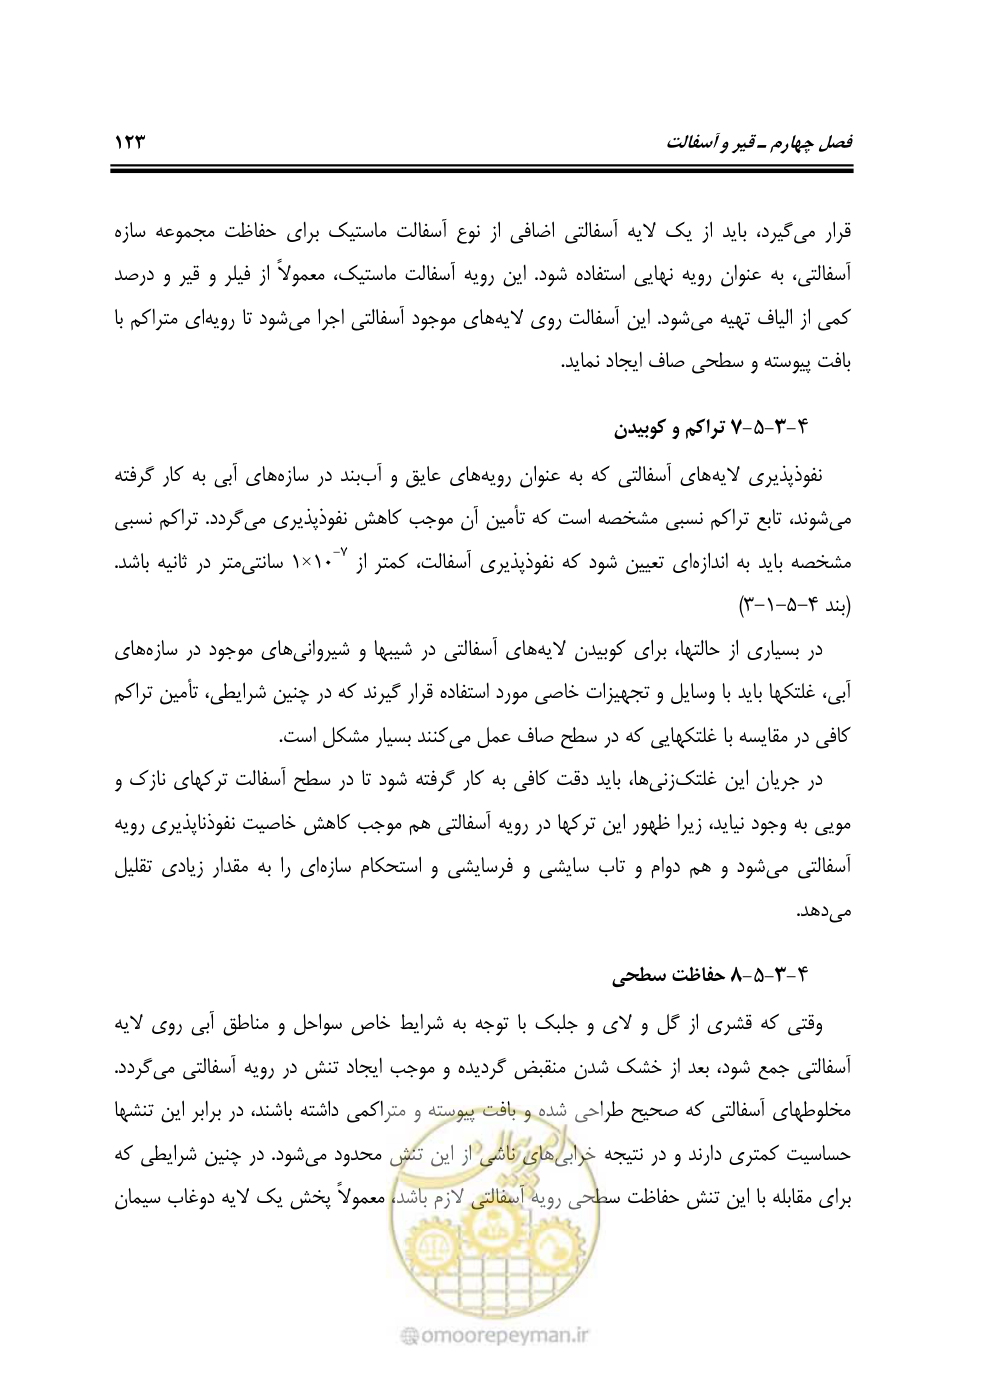 فصل چهارم ـ قیر و آسفالت ۱۲۳
قرار می‌گیرد، باید از یک لایه آسفالتی اضافی از نوع آسفالت ماستیک برای حفاظت مجموعه سازه
آسفالتی، به عنوان رویه نهایی استفاده شود. این رویه آسفالت ماستیک، معمولاً از فیلر و قیر و درصد
کمی از الیاف تهیه می‌شود. این آسفالت روی لایه‌های موجود آسفالتی اجرا می‌شود تا رویه‌ای متراکم با
بافت پیوسته و سطحی صاف ایجاد نماید.
۴-۳-۵-۷ تراکم و کوبیدن
نفوذپذیری لایه‌های آسفالتی که به عنوان رویه‌های عایق و آب‌بند در سازه‌های آبی به کار گرفته
می‌شوند، تابع تراکم نسبی مشخصه است که تأمین آن موجب کاهش نفوذپذیری می‌گردد. تراکم نسبی
مشخصه باید به اندازه‌ای تعیین شود که نفوذپذیری آسفالت، کمتر از ۱×۱۰⁻۷ سانتی‌متر در ثانیه باشد.
(بند ۴-۵-۱-۳)
در بسیاری از حالتها، برای کوبیدن لایه‌های آسفالتی در شیبها و شیروانی‌های موجود در سازه‌های
آبی، غلتکها باید با وسایل و تجهیزات خاصی مورد استفاده قرار گیرند که در چنین شرایطی، تأمین تراکم
کافی در مقایسه با غلتکهایی که در سطح صاف عمل می‌کنند بسیار مشکل است.
در جریان این غلتک‌زنی‌ها، باید دقت کافی به کار گرفته شود تا در سطح آسفالت ترکهای نازک و
مویی به وجود نیاید، زیرا ظهور این ترکها در رویه آسفالتی هم موجب کاهش خاصیت نفوذناپذیری رویه
آسفالتی می‌شود و هم دوام و تاب سایشی و فرسایشی و استحکام سازه‌ای را به مقدار زیادی تقلیل
می‌دهد.
۴-۳-۵-۸ حفاظت سطحی
وقتی که قشری از گل و لای و جلبک با توجه به شرایط خاص سواحل و مناطق آبی روی لایه
آسفالتی جمع شود، بعد از خشک شدن منقبض گردیده و موجب ایجاد تنش در رویه آسفالتی می‌گردد.
مخلوطهای آسفالتی که صحیح طراحی شده و بافت پیوسته و متراکمی داشته باشند، در برابر این تنشها
حساسیت کمتری دارند و در نتیجه خرابی‌های ناشی از این تنش محدود می‌شود. در چنین شرایطی که
برای مقابله با این تنش حفاظت سطحی رویه آسفالتی لازم باشد، معمولاً پخش یک لایه دوغاب سیمان
امور پیمان
@omoorepeyman.ir